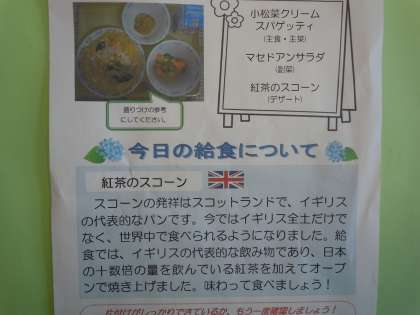 小松菜クリーム
スパゲッティ
(主食・主菜)
マセドアンサラダ
(副菜)
紅茶のスコーン
(デザート)
盛りつけの参考
にしてください。
今日の給食について
紅茶のスコーン
スコーンの発祥はスコットランドで、イギリス
の代表的なパンです。今ではイギリス全土だけで
なく、世界中で食べられるようになりました。給
食では、イギリスの代表的な飲み物であり、日本
の十数倍の量を飲んでいる紅茶を加えてオーブ
ンで焼き上げました。味わって食べましょう！
片付けがしっかりできているか、もう一度確認しましょう！